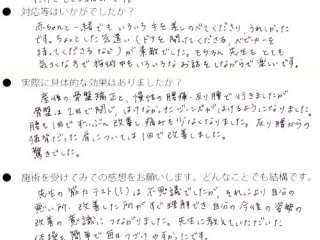 ● 対応等はいかがでしたか？
赤ちゃんと一緒でもいろいろ手を差しのべてくださり、うれしかった
です。ちょっとした気遣い（ドアを開けてくださる、ベビーカーを
持ってくださるなど）が素敵でした。もちろん、先生もとても
気さくな方で施術中もいろいろなお話をしながらで楽しいです。
● 実際に具体的な効果はありましたか？
産後の骨盤矯正と、慢性の腰痛・反り腰で行きましたが
骨盤は1回で閉じ、はけなかったジーンズがはけるようになりました。
腰も1回でずいぶん改善し痛みもなくなりました。反り腰からの
猫背だった肩については1回で改善しました。
驚きでした。
● 施術を受けてみての感想をお願いします。どんなことでも結構です。
先生の筋力テスト(?)は不思議でしたが、それにより自分の
悪い所、改善した所がすぐ理解でき自分の今後の姿勢の
改善の意識につながりました。先生に教えていただいた
体操も簡単で毎日つづけやすかったです。